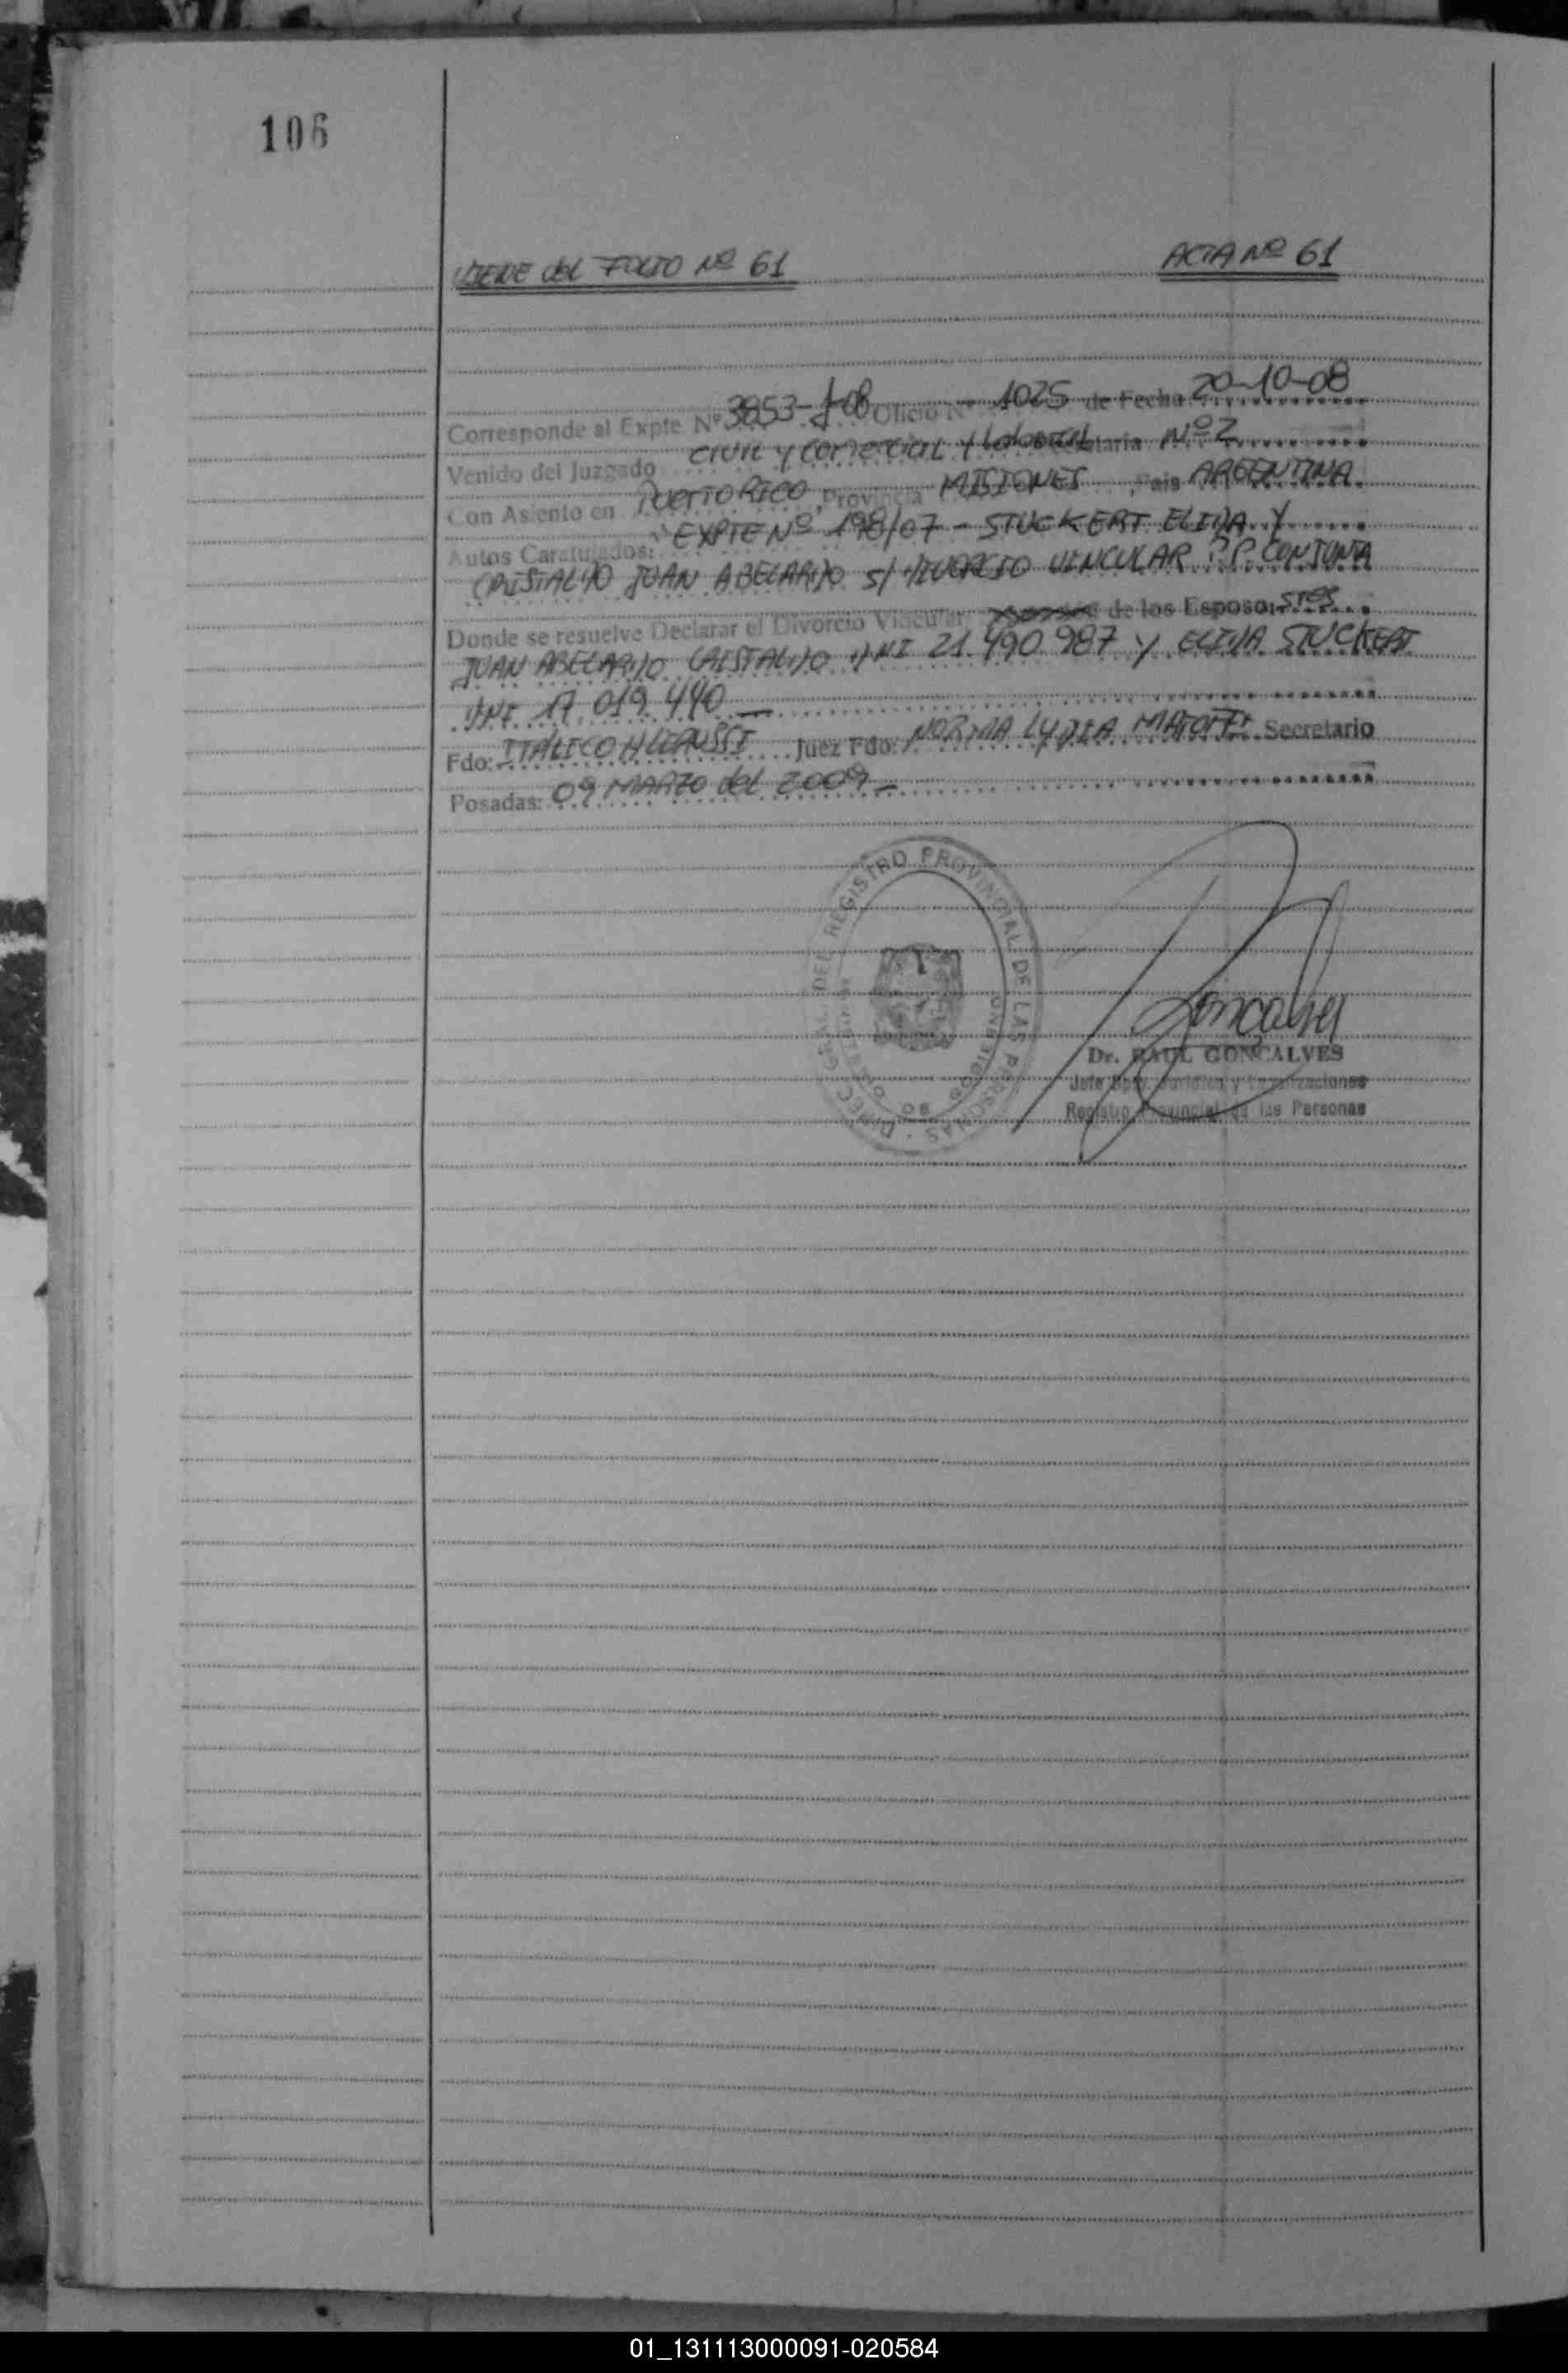 106
VIENE del FOLIO Nº 61
ACTA Nº 61
Corresponde al Expte Nº 3853-J-08 Oficio Nº 1025 de Fecha 20-10-08
Venido del Juzgado CIVIL y COMERCIAL Y LABORAL Secretaria Nº 2
Con Asiento en PUERTO RICO, Provincia MISIONES, Pais ARGENTINA
Autos Caratulados: EXPTE Nº 198/07 - STUCKERT ELIDA Y
CRISTALDO JUAN ABELARDO S/ DIVORCIO VINCULAR P.P. CONJUNTA
Donde se resuelve Declarar el Divorcio Vincular de los Esposos
JUAN ABELARDO CRISTALDO DNI 21.490.987 Y ELIDA STUCKERT
DNI 17 019 440
Fdo: Juez Fdo: NORMA LYDIA Secretario
Posadas: 09 MARZO del 2009
DIREC. GRAL. DEL REGISTRO PROVINCIAL DE LAS PERSONAS
Dr. RAUL GONÇALVES
Jefe Dpto. Jurídico y Legalizaciones
Registro Provincial de las Personas
01_131113000091-020584